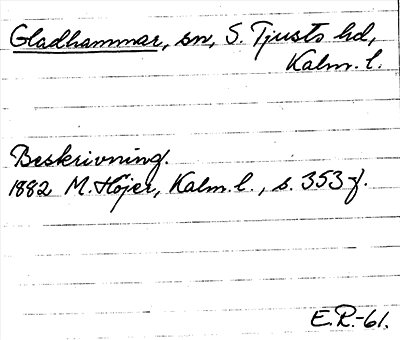 Gladhammar, sn, S. Tjusts hd,
Kalm. l.
Beskrivning.
1882 M. Höjer, Kalm. l., s. 353 f.
E.R.-61.